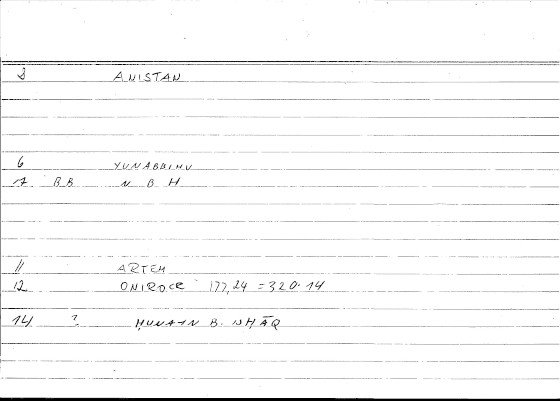 8 ANISTAN
6 YUNABBIHU
7 BB N B H
11 ARTEM
12 ONIROCR 177,24 = 320.14
14 ? ḤUNAIN B. ISHĀQ